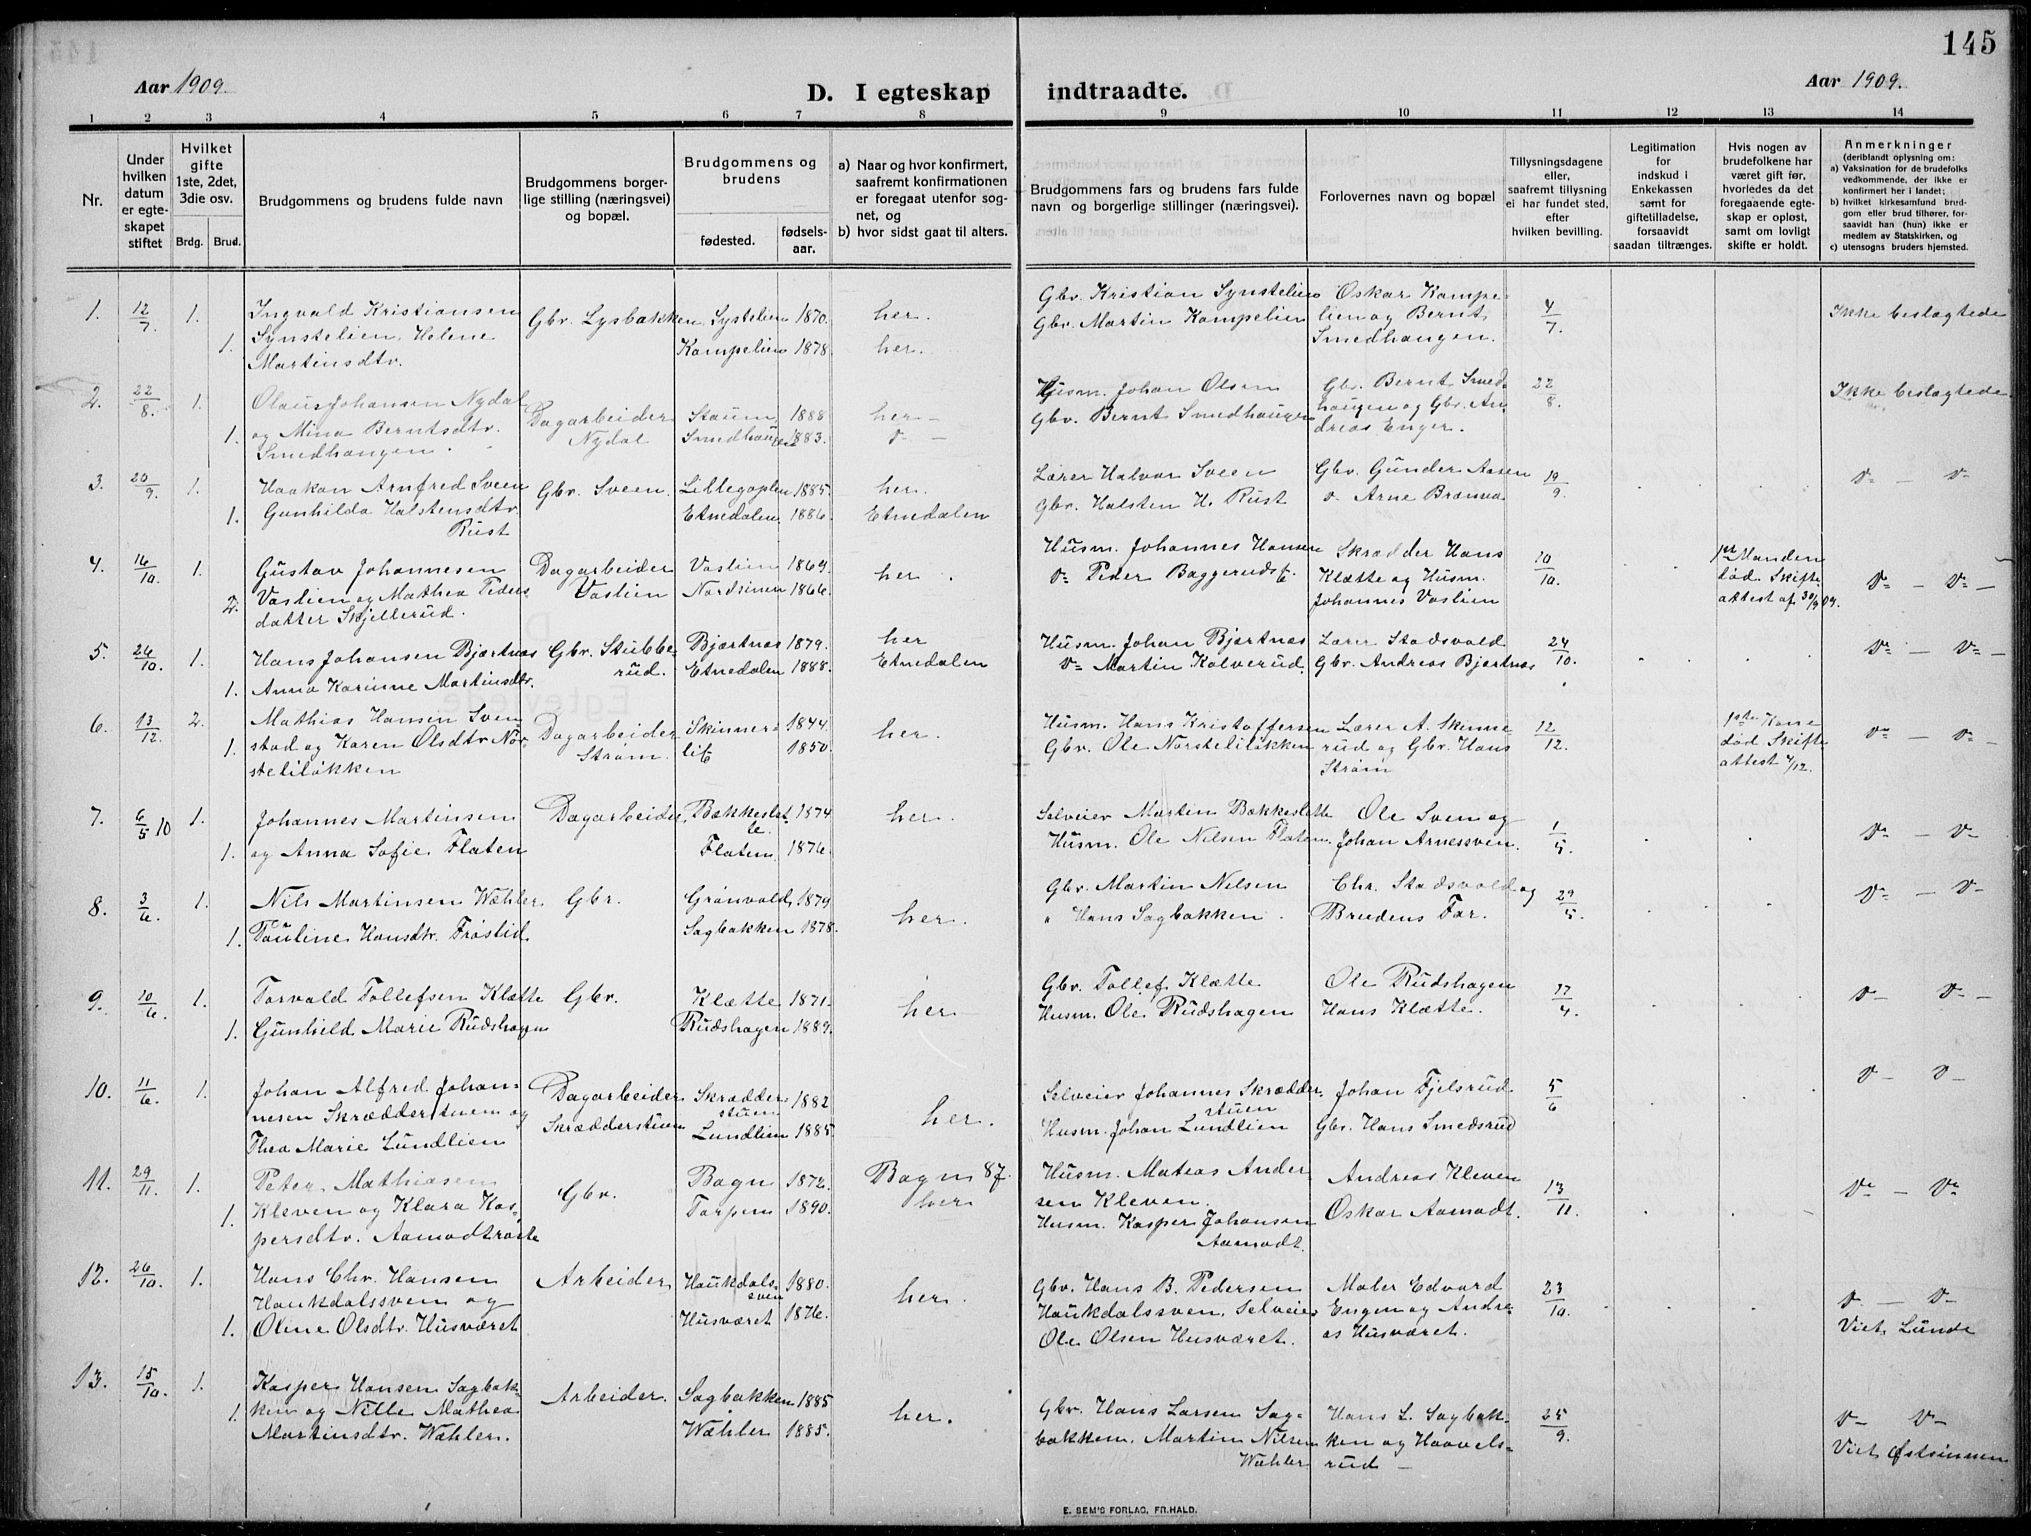 145
Aar 1909.
D. I egteskap indtraadte.
Aar 1909.
1 2 3 4 5 6 7 8 9 10 11 12 13 14
Nr.
Under hvilken datum er egteskapet stiftet
Hvilket gifte 1ste, 2det, 3die osv.
Brdg. Brud.
Brudgommens og brudens fulde navn
Brudgommens borgerlige stilling (næringsvei) og bopæl.
Brudgommens og brudens
fødested.
fødselsaar.
a) Naar og hvor konfirmert, saafremt konfirmationen er foregaat utenfor sognet, og
b) hvor sidst gaat til alters.
Brudgommens fars og brudens fars fulde navn og borgerlige stillinger (næringsvei).
Forlovernes navn og bopæl
Tillysningsdagene eller, saafremt tillysning ei har fundet sted, efter hvilken bevilling.
Legitimation for indskud i Enkekassen samt for giftetilladelse, forsaavidt saadan tiltrænges.
Hvis nogen av brudefolkene har været gift før, hvorledes da det foregaaende egteskap er opløst, samt om lovligt skifte er holdt.
Anmerkninger
(deriblandt oplysning om:
a) Vaksination for de brudefolks vedkommende, der ikke er konfirmert her i landet;
b) hvilket kirkesamfund brudgom eller brud tilhører, forsaavidt han (hun) ikke er medlem av Statskirken, og
c) utensogns bruders hjemsted.
1. 12/7. 1. Ingvald Kristiansen Gbr. Lysbakken Systelien 1870. her. Gbr. Kristian Synstelien Oskar Kampe- 4/7. Ikke beslægtede
1. Synstelien, Helene Kampelien 1878. her. Gbr. Martin Kampelien lien og Bernt
Martinsdtr. Smedhaugen.
2. 22/8. 1. Olaus Johansen Nydal Dagarbeider Staum 1888 her - Husm. Johan Olsen Gbr. Bernt Smed- 22/8. Ikke beslægtede
1. og Mina Berntsdtr. Nydal Smedhaugen 1883. v - Gbr. Bernt Smedhaugen haugen og Gbr. An-
Smedhaugen. dreas Enger.
3. 20/9. 1. Haakon Arnfred Sveen Gbr. Sveen. Lillegaplen 1885. her. Lærer Halvor Sveen Gbr. Gunder Aasen 19/9. v - v-
1. Gunhilda Halstensdtr. Etnedalen 1886. Etnedalen Gbr. Halsten H. Rust v. Arne Brænva
Rust
4. 16/10. 1. Gustav Johannesen Dagarbeider Vaslien 1869. her. Husm. Johannes Hansen Skrædder Hans 10/10. 1ste Manden v- - v- -
2. Vaslien og Mathea Peders- Vaslien Nordsinnen 1866. v- Peder Baggerudst. Klætte og Husm. død. Skifte-
datter Skjellerud. Johannes Vaslien attest af 30/9 09.
5. 26/10. 1. Hans Johansen Bjørtnæs Gbr. Stubbe- Bjørtnæs 1879. her Husm. Johan Bjørtnæs Lærer Stadsvold 24/10. v- - v- -
1. Anna Karinne Martinsdtr. rud. Etnedalen 1888. Etnedalen v- Martin Kalverud. Gbr. Andreas Bjørtnæs
6. 13/12. 2. Mathias Hansen Sven- Dagarbeider Skinner- 1844 her. Husm. Hans Kristoffersen Lærer A. Skinne- 12/12. 1ste Kone v- - v- -
1. stad og Karen Olsdtr. Nor- Strøm. lit 1850. Gbr. Ole Norsteliløkken rud og Gbr. Hans død Skifte-
steliløkken Strøm attest 4/12.
7. 6/5 10 1. Johannes Martinsen Dagarbeider. Bækkeslet- 1874 her. Selveier Martin Bækkeslette Ole Sven og 1/5. v- - v-
1. og Anna Sofie Flaten te. Flaten 1876. Husm. Ole Nilsen Flaten. Johan Arnessven.
8. 3/6. 1. Nils Martinsen Wæhler Gbr. Grønvold 1879 her. Gbr. Martin Nilsen Chr. Stadsvold og 29/5. v- - v-
1. Pauline Hansdtr. Frøslid. Sagbakken 1878. " Hans Sagbakken. Brudens Far.
9. 10/6. 1. Torvald Tollefsen Klætte Gbr. Klætte 1871. her Gbr. Tollef Klætte Ole Rudshagen 17/4. v- v- -
1. Gunhild Marie Rudshagen Rudshagen 1889. Husm. Ole Rudshagen Hans Klætte.
10. 11/6. 1. Johan Alfred Johan- Dagarbeider Skrædder- 1882 her. Selveier Johannes Skrædder- Johan Fjelsrud. 5/6 v - v-
nesen Skrædderstuen og Skrædderstuen stuen stuen
Thea Marie Lundlien Lundlien 1885. Husm. Johan Lundlien Gbr. Hans Smedsrud
11. 29/11. 1. Peter Mathiasen Gbr. Bagn 1872. Bagn 87. Husm. Mateas Ander- Andreas Kleven 13/11. v- - v-
1. Kleven og Klara Kas- Torpen 1890. her sen Kleven. Oskar Aamodt.
persdtr. Aamodtrøste Husm. Kasper Johansen
Aamodt.
12. 26/10. 1. Hans Chr. Hansen Arbeider Haukdals- 1880. her. Gbr. Hans B. Pedersen Maler Edvard 23/10. v - v-
Haukdalssven og sven Haukdalssven. Selveier Engen og Andre- Viet Lunde
1. Oline Olsdtr. Husværet Husværet 1876. Ole Olsen Husværet. as Husværet.
13. 15/10. 1. Kasper Hansen Sagbak- Arbeider. Sagbakken 1885 her. Gbr. Hans Larsen Sag- Hans L. Sagbak- 25/9. v- v-
1. ken og Nille Mathea Wæhler 1885. bakken. Martin Nilsen ken og Haavels- Viet Østsinnen
Martinsdtr. Wæhler. Wæhler rud -
E. SEM'S FORLAG, FR.HALD.